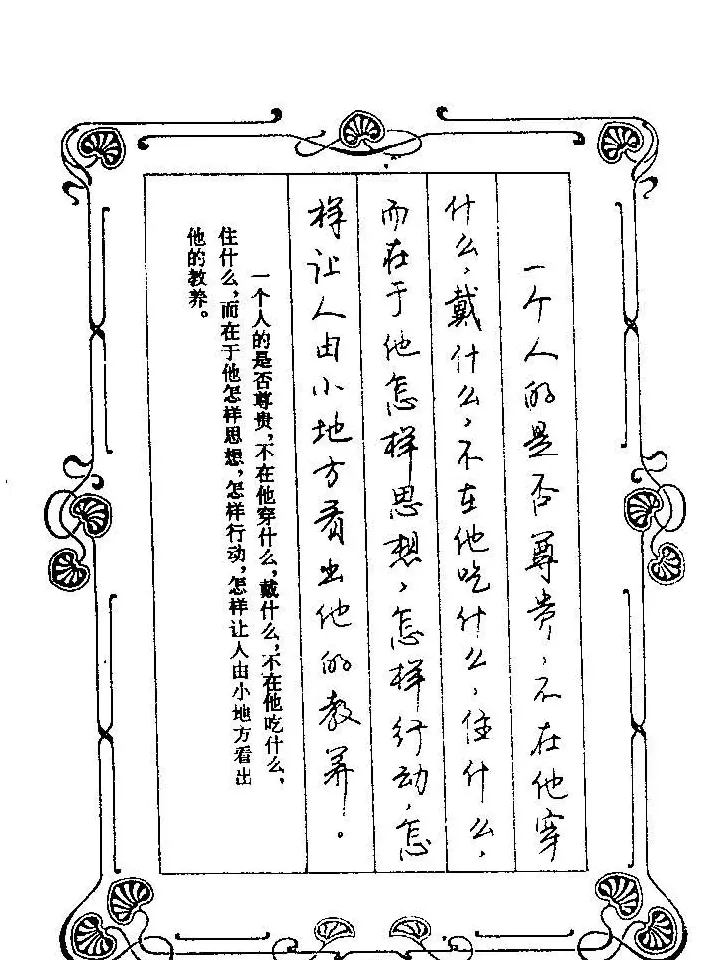 一个人的是否尊贵，不在他穿
什么，戴什么，不在他吃什么，住什么，
而在于他怎样思想，怎样行动，怎
样让人由小地方看出他的教养。
一个人的是否尊贵，不在他穿什么，戴什么，不在他吃什么，
住什么，而在于他怎样思想，怎样行动，怎样让人由小地方看出
他的教养。